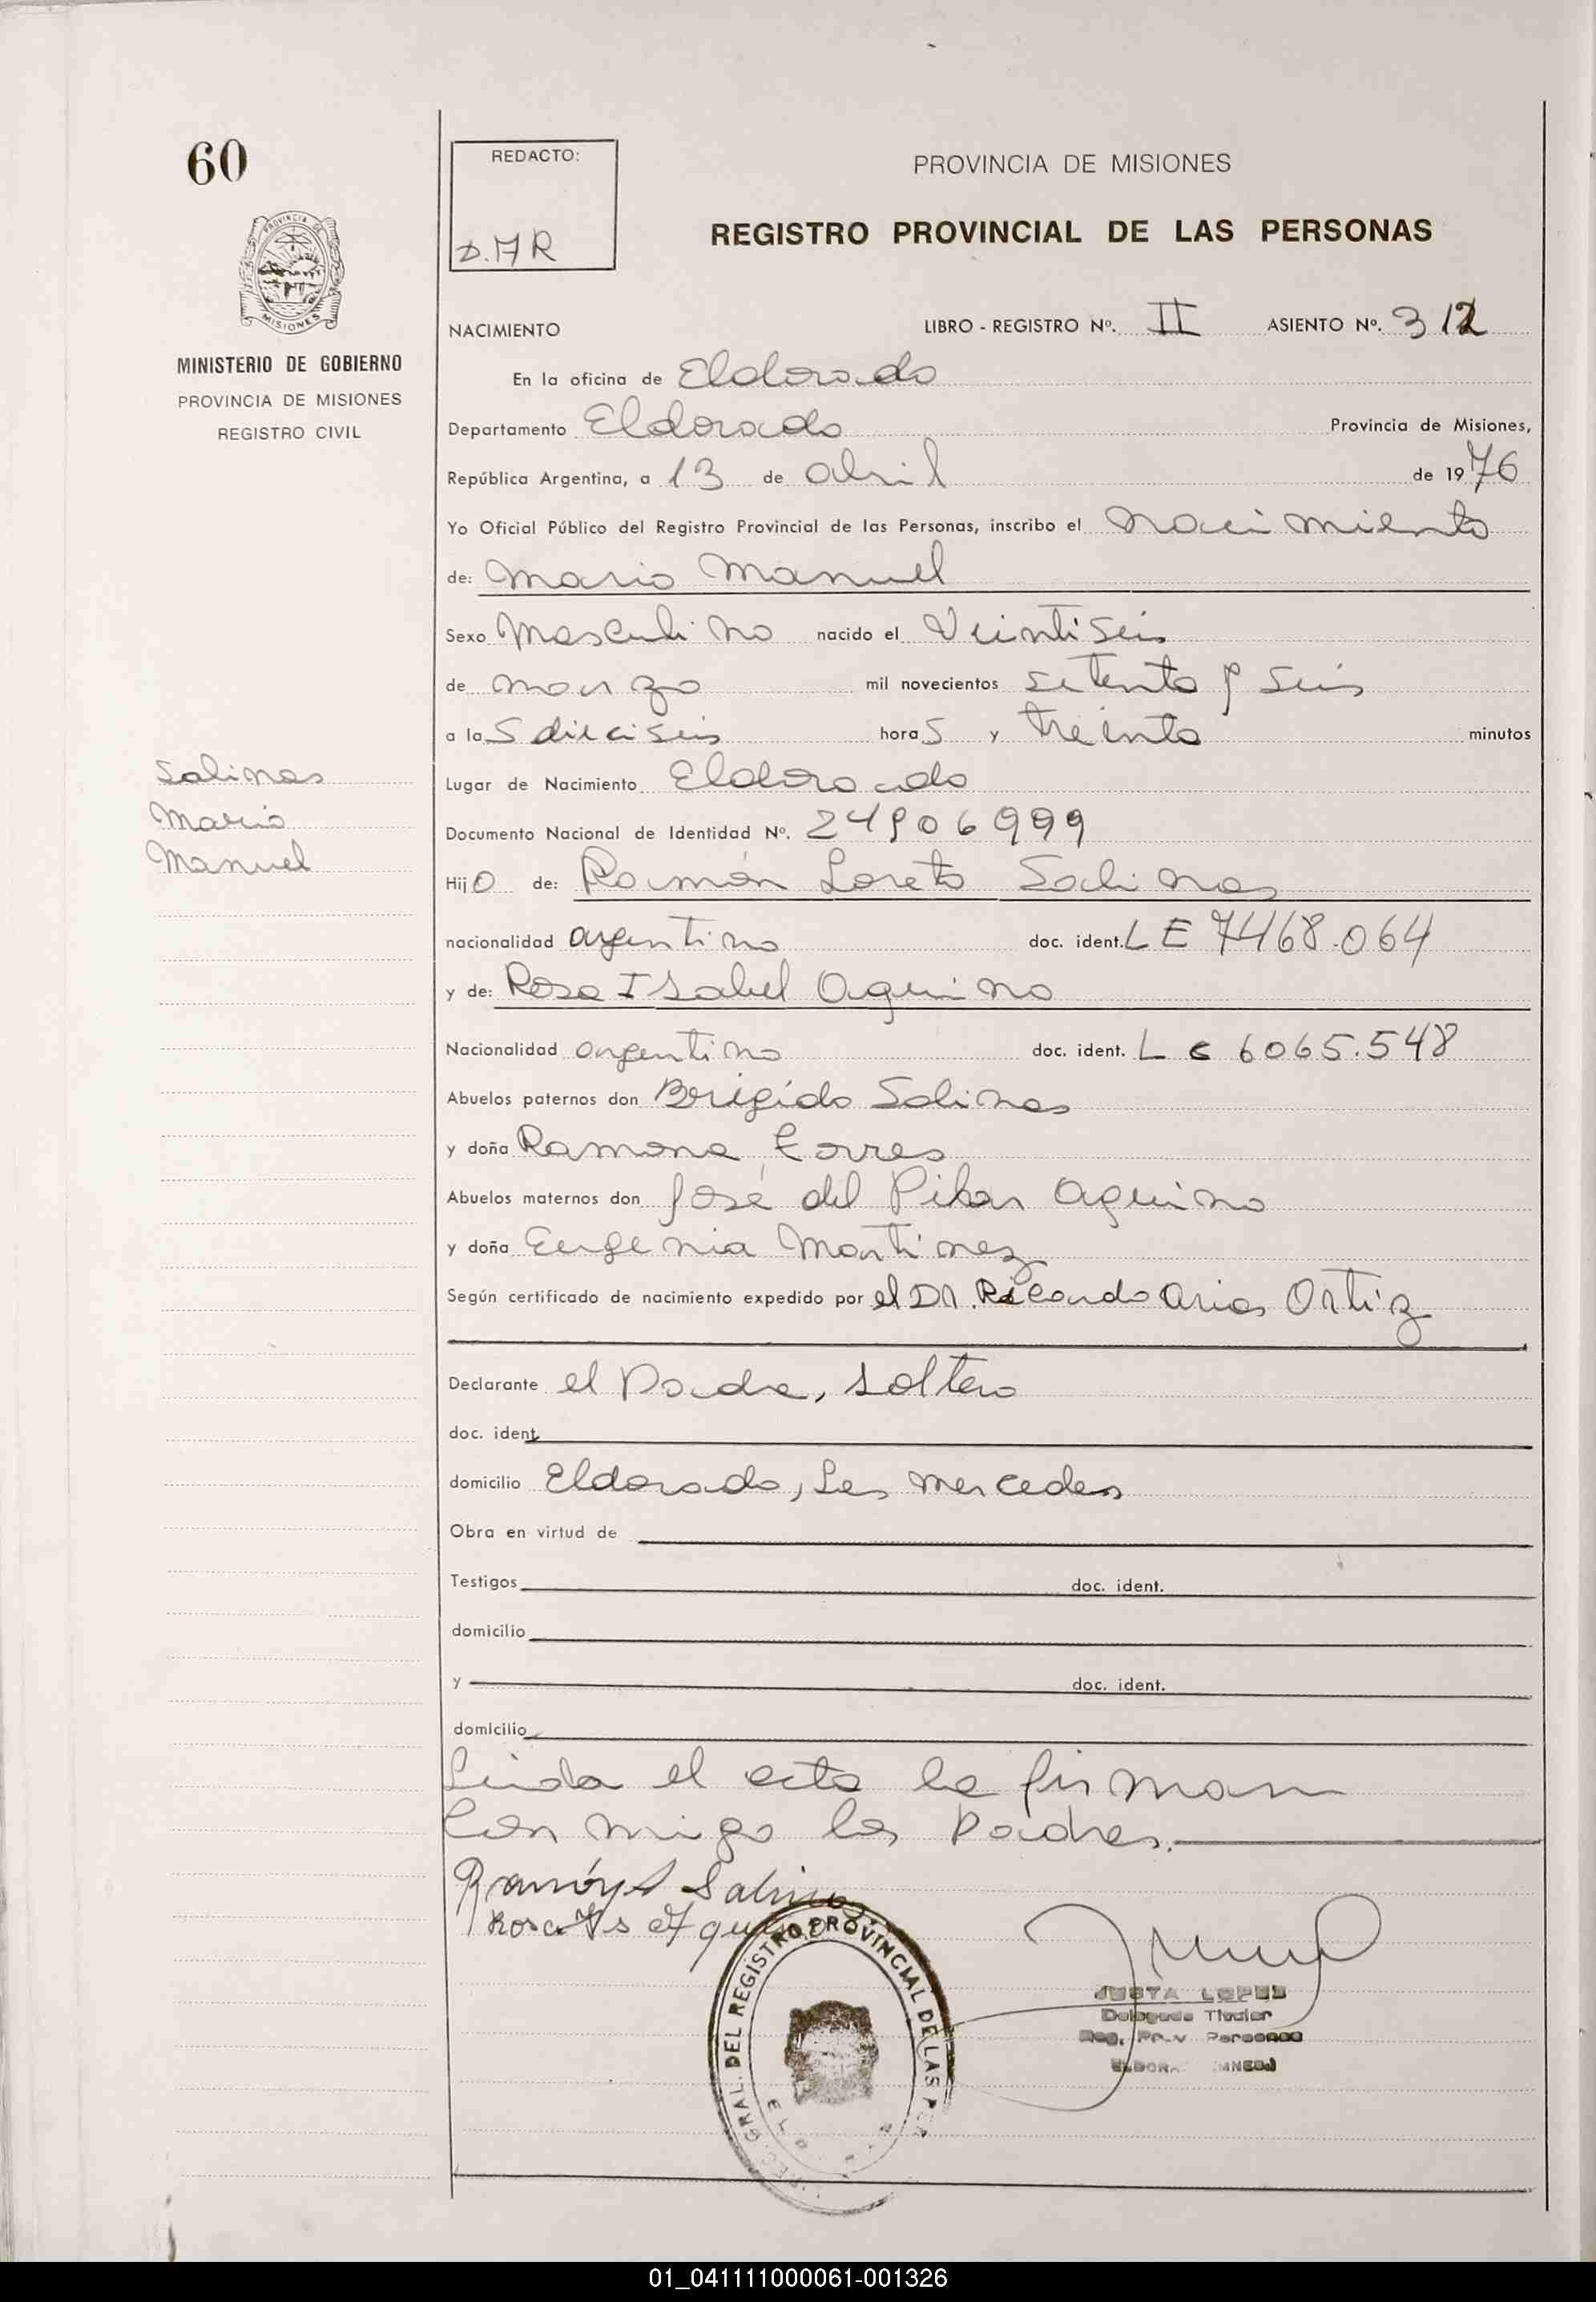 60
PROVINCIA DE
MISIONES
MINISTERIO DE GOBIERNO
PROVINCIA DE MISIONES
REGISTRO CIVIL
REDACTO:
D.M R
PROVINCIA DE MISIONES
REGISTRO PROVINCIAL DE LAS PERSONAS
NACIMIENTO LIBRO - REGISTRO Nº. II ASIENTO Nº. 312
En la oficina de Eldorado
Departamento Eldorado Provincia de Misiones,
República Argentina, a 13 de abril de 1976
Yo Oficial Público del Registro Provincial de las Personas, inscribo el Nacimiento
de: Mario Manuel
Sexo Masculino nacido el Veintiseis
de marzo mil novecientos setenta y seis
a las dieciseis horas y treinta minutos
Salinas
Mario
Manuel
Lugar de Nacimiento Eldorado
Documento Nacional de Identidad Nº. 24906999
Hijo de: Ramón Loreto Salinas
nacionalidad argentino doc. ident. LE 7468.064
y de: Rosa Isabel Aquino
Nacionalidad argentina doc. ident. L C 6065.548
Abuelos paternos don Brígido Salinas
y doña Ramona Torres
Abuelos maternos don José del Pilar Aquino
y doña Eugenia Martinez
Según certificado de nacimiento expedido por el Dr. Ricardo Arias Ortiz
Declarante el Padre, soltero
doc. ident.
domicilio Eldorado, Las Mercedes
Obra en virtud de
Testigos doc. ident.
domicilio
y doc. ident.
domicilio
Leida el acta la firman
Con migo los Padres.
Ramón L Salinas
Rosa Is Aquino
GRAL. DEL REGISTRO PROVINCIAL DE LAS PER
JUSTA LOPES
Delegada Titular
Reg. Prov. Personas